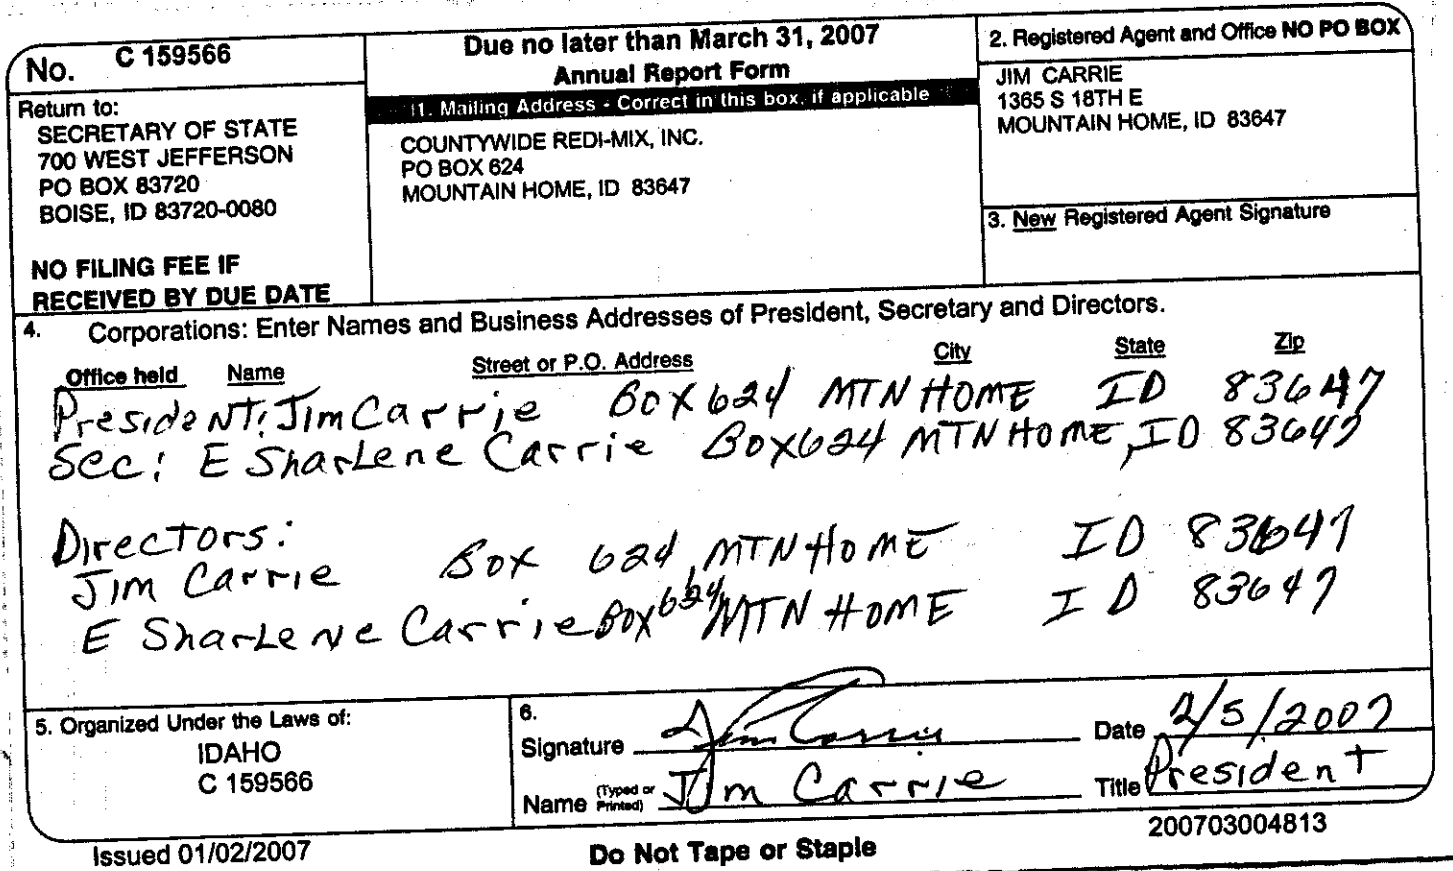 No. C 159566
Return to:
SECRETARY OF STATE
700 WEST JEFFERSON
PO BOX 83720
BOISE, ID 83720-0080
NO FILING FEE IF
RECEIVED BY DUE DATE
Due no later than March 31, 2007
Annual Report Form
1. Mailing Address - Correct in this box, if applicable
COUNTYWIDE REDI-MIX, INC.
PO BOX 624
MOUNTAIN HOME, ID 83647
2. Registered Agent and Office NO PO BOX
JIM CARRIE
1365 S 18TH E
MOUNTAIN HOME, ID 83647
3. New Registered Agent Signature
4. Corporations: Enter Names and Business Addresses of President, Secretary and Directors.
Office held Name Street or P.O. Address City State Zip
President: Jim Carrie Box 624 MTN HOME ID 83647
Sec: E Sharlene Carrie Box 624 MTN HOME, ID 83647
Directors:
Jim Carrie Box 624, MTN HOME ID 83647
E Sharlene Carrie Box 624 MTN HOME ID 83647
5. Organized Under the Laws of:
IDAHO
C 159566
6.
Signature Jim Carrie Date 2/5/2007
Name (Typed or Printed) Jim Carrie Title President
Issued 01/02/2007 Do Not Tape or Staple 200703004813